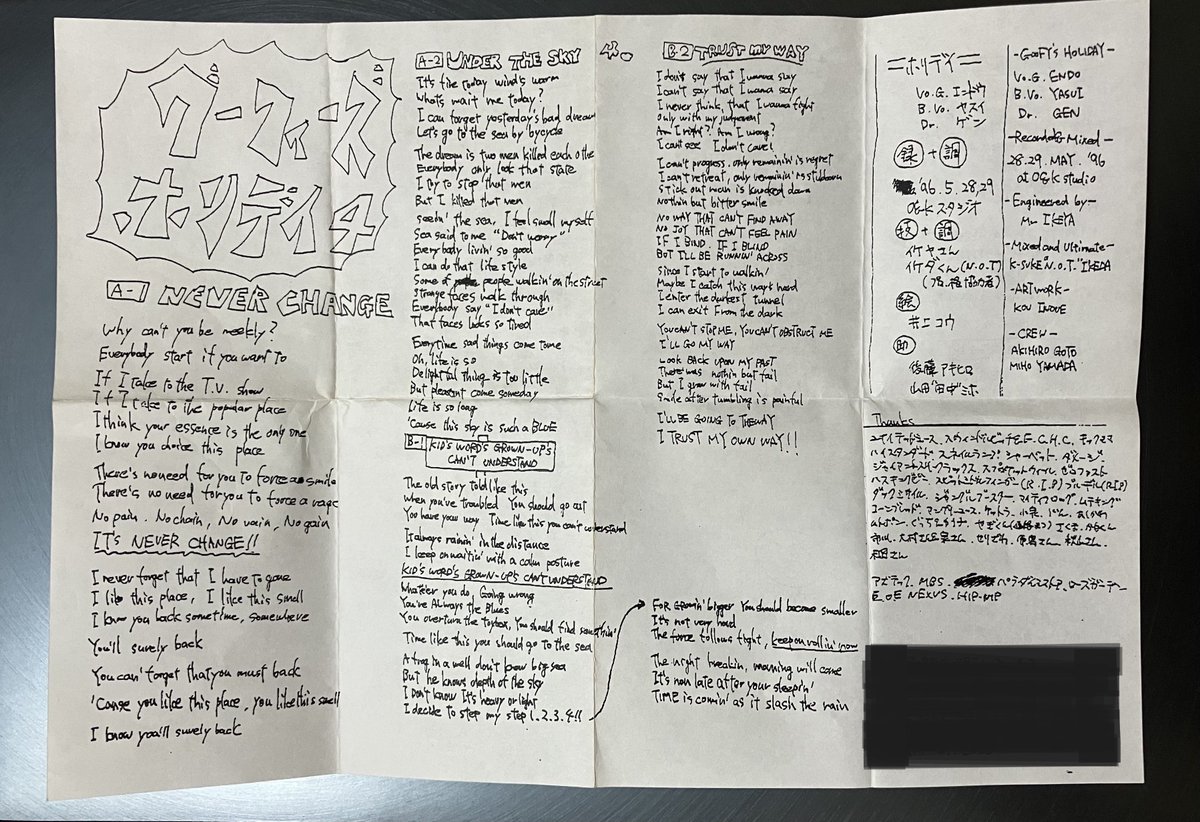 グーフィーズ
ホリデイ4
A-1 NEVER CHANGE
Why can't you be meekly?
Everybody start if you want to
If I take to the T.V. show
If I take to the popular place
I think your essence is the only one
I know you choice this place
There's no need for you to force a smile
There's no need for you to force a rage
No pain. No chain, No vain, No gain
IT'S NEVER CHANGE!!
I never forget that I have to gone
I like this place, I like this smell
I know you back sometime, somewhere
You'll surely back
You can't forget that you must back
'Cause you like this place, you like this smell
I know you'll surely back
A-2 UNDER THE SKY
It's fine today wind's warm
What's wait me today?
I can forget yesterday's bad dream
Let's go to the sea by bycycle
The dream is two men killed each othe
Everybody only look that state
I try to stop that men
But I killed that men
Seein' the sea, I feel small myself
Sea said to me "Don't worry"
Everybody livin' so good
I can do that life style
Some of people walkin' on the street
Strange faces walk through
Everybody say "I don't care"
That faces looks so tired
Everytime sad things come to me
Oh, life is so
Delightful thing is too little
But pleasant come someday
Life is so long
'Cause this sky is such a BLUE
B-1 KID'S WORD'S GROWN-UP'S
CAN'T UNDERSTAND
The old story told like this
When you've troubled You should go out
You have your way Time like this you can't understand
It always rainin' in the distance
I keep on waitin' with a calm posture
KID'S WORD'S GROWN-UP'S CAN'T UNDERSTAND
Whatever you do, Going wrong
You're Always the Blues
You overturn the toybox, You should find somethin'
Time like this you should go to the sea
A frog in a well don't know big sea
But he knows depth of the sky
I Don't know It's heavy or light
I decide to step my step 1.2.3.4!!
For Growin' bigger You should become smaller
It's not very hard
The force follows fight, keep on rollin' now
The night breakin, morning will come
It's non late after your sleepin'
TIME is comin' as it slash the rain
4.
B-2 TRUST MY WAY
I don't say that I wanna stay
I can't say that I wanna say
I never think, that I wanna fight
Only with my judgement
Am I right? Am I wrong?
I can't see I don't care!
I can't progress, only remainin' is regret
I can't retreat, only remainin' is stubborn
Stick out man is knocked down
Nothin but bitter smile
NO WAY THAT CAN'T FIND AWAY
NO JOY THAT CAN'T FEEL PAIN
IF I BIND. IF I BLIND
BUT I'LL BE RUNNIN' ACROSS
Since I start to walkin'
Maybe I catch this way's hard
I enter the darkest tunnel
I can exit From the dark
YOU CAN'T STOP ME, YOU CAN'T OBSTRUCT ME
I'LL GO MY WAY
LOOK BACK UPON MY PAST
There was nothin but fail
But I grow with fail
Smile after tumbling is painful
I'LL BE GOING TO THE WAY
I TRUST MY OWN WAY!!
=ホリデイ=
Vo.G. エンドウ
B.Vo. ヤスイ
Dr. ゲン
録+調
'96.5.28,29
O&Kスタジオ
技+調
イケヤさん
イケダくん(N.O.T)
絵
井エコウ
助
佐藤アキヒロ
山田ミホ
-GOOFY'S HOLIDAY-
Vo.G. ENDO
B.Vo. YASUI
Dr. GEN
-Recorded & Mixed-
28.29. MAY. '96
at O&K studio
-Engineered by-
Mr. IKEYA
-Mixed and Ultimate-
K-SUKE "N.O.T." IKEDA
-ARTWORK-
KOU INOUE
-CREW-
AKIHIRO GOTO
MIHO YAMADA
Thanks
ハイスタンダード スネイルランプ シャーベット ダメージ
E OE NEXUS. HIP-MP